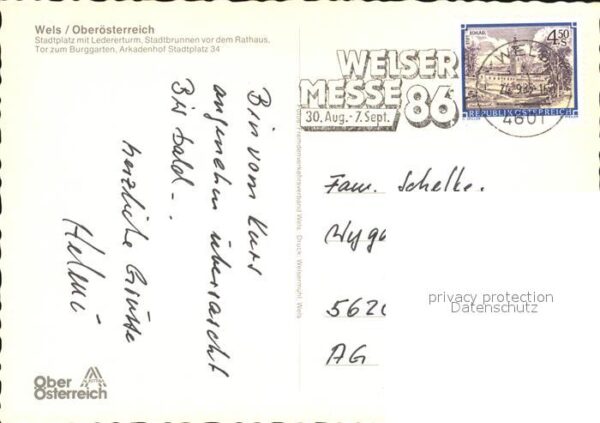 Wels / Oberösterreich
Stadtplatz mit Ledererturm, Stadtbrunnen vor dem Rathaus,
Tor zum Burggarten, Arkadenhof Stadtplatz 34
WELSER
MESSE 86
30. Aug. - 7. Sept.
WELS
4601
4.50
S
REPUBLIK ÖSTERREICH
Bin vom Kurs
angenehm überrascht
Bis bald -.
herzliche Grüsse
Helmi
Fam. Schelke.
5620
AG
privacy protection
Datenschutz
Fremdenverkehrsverband Wels. Druck: Welsermühl, Wels
Ober
Österreich